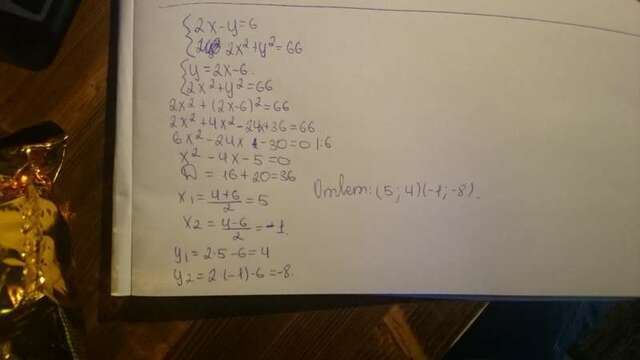 {2x-y=6
{2x²+y²=66
{y=2x-6
{2x²+y²=66
2x²+(2x-6)²=66
2x²+4x²-24x+36=66
6x²-24x-30=0 |:6
x²-4x-5=0
D=16+20=36
x₁=4+6/2=5
x₂=4-6/2=-1
y₁=2·5-6=4
y₂=2·(-1)-6=-8
Ответ: (5; 4) (-1; -8).